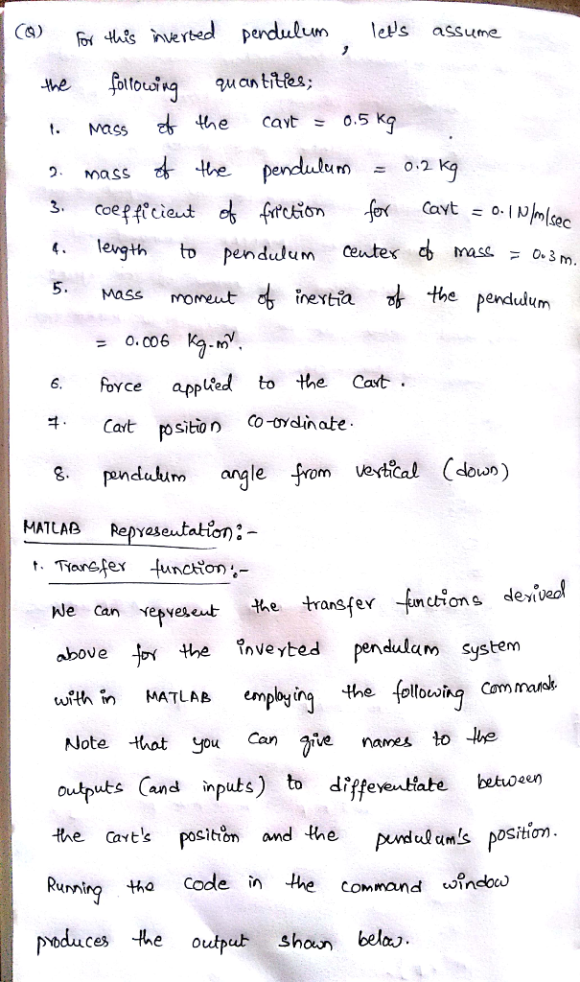 (Q) For this inverted pendulum, let's assume
the following quantities;
1. Mass of the cart = 0.5 kg
2. mass of the pendulum = 0.2 kg
3. coefficient of friction for cart = 0.1 N/m/sec
4. length to pendulum center of mass = 0.3 m.
5. Mass moment of inertia of the pendulum
= 0.006 kg-m².
6. Force applied to the cart.
7. Cart position co-ordinate.
8. pendulum angle from vertical (down)
MATLAB Representation:-
1. Transfer function:-
We can represent the transfer functions derived
above for the inverted pendulum system
with in MATLAB employing the following commands.
Note that you can give names to the
outputs (and inputs) to differentiate between
the cart's position and the pendulum's position.
Running the code in the command window
produces the output shown below.